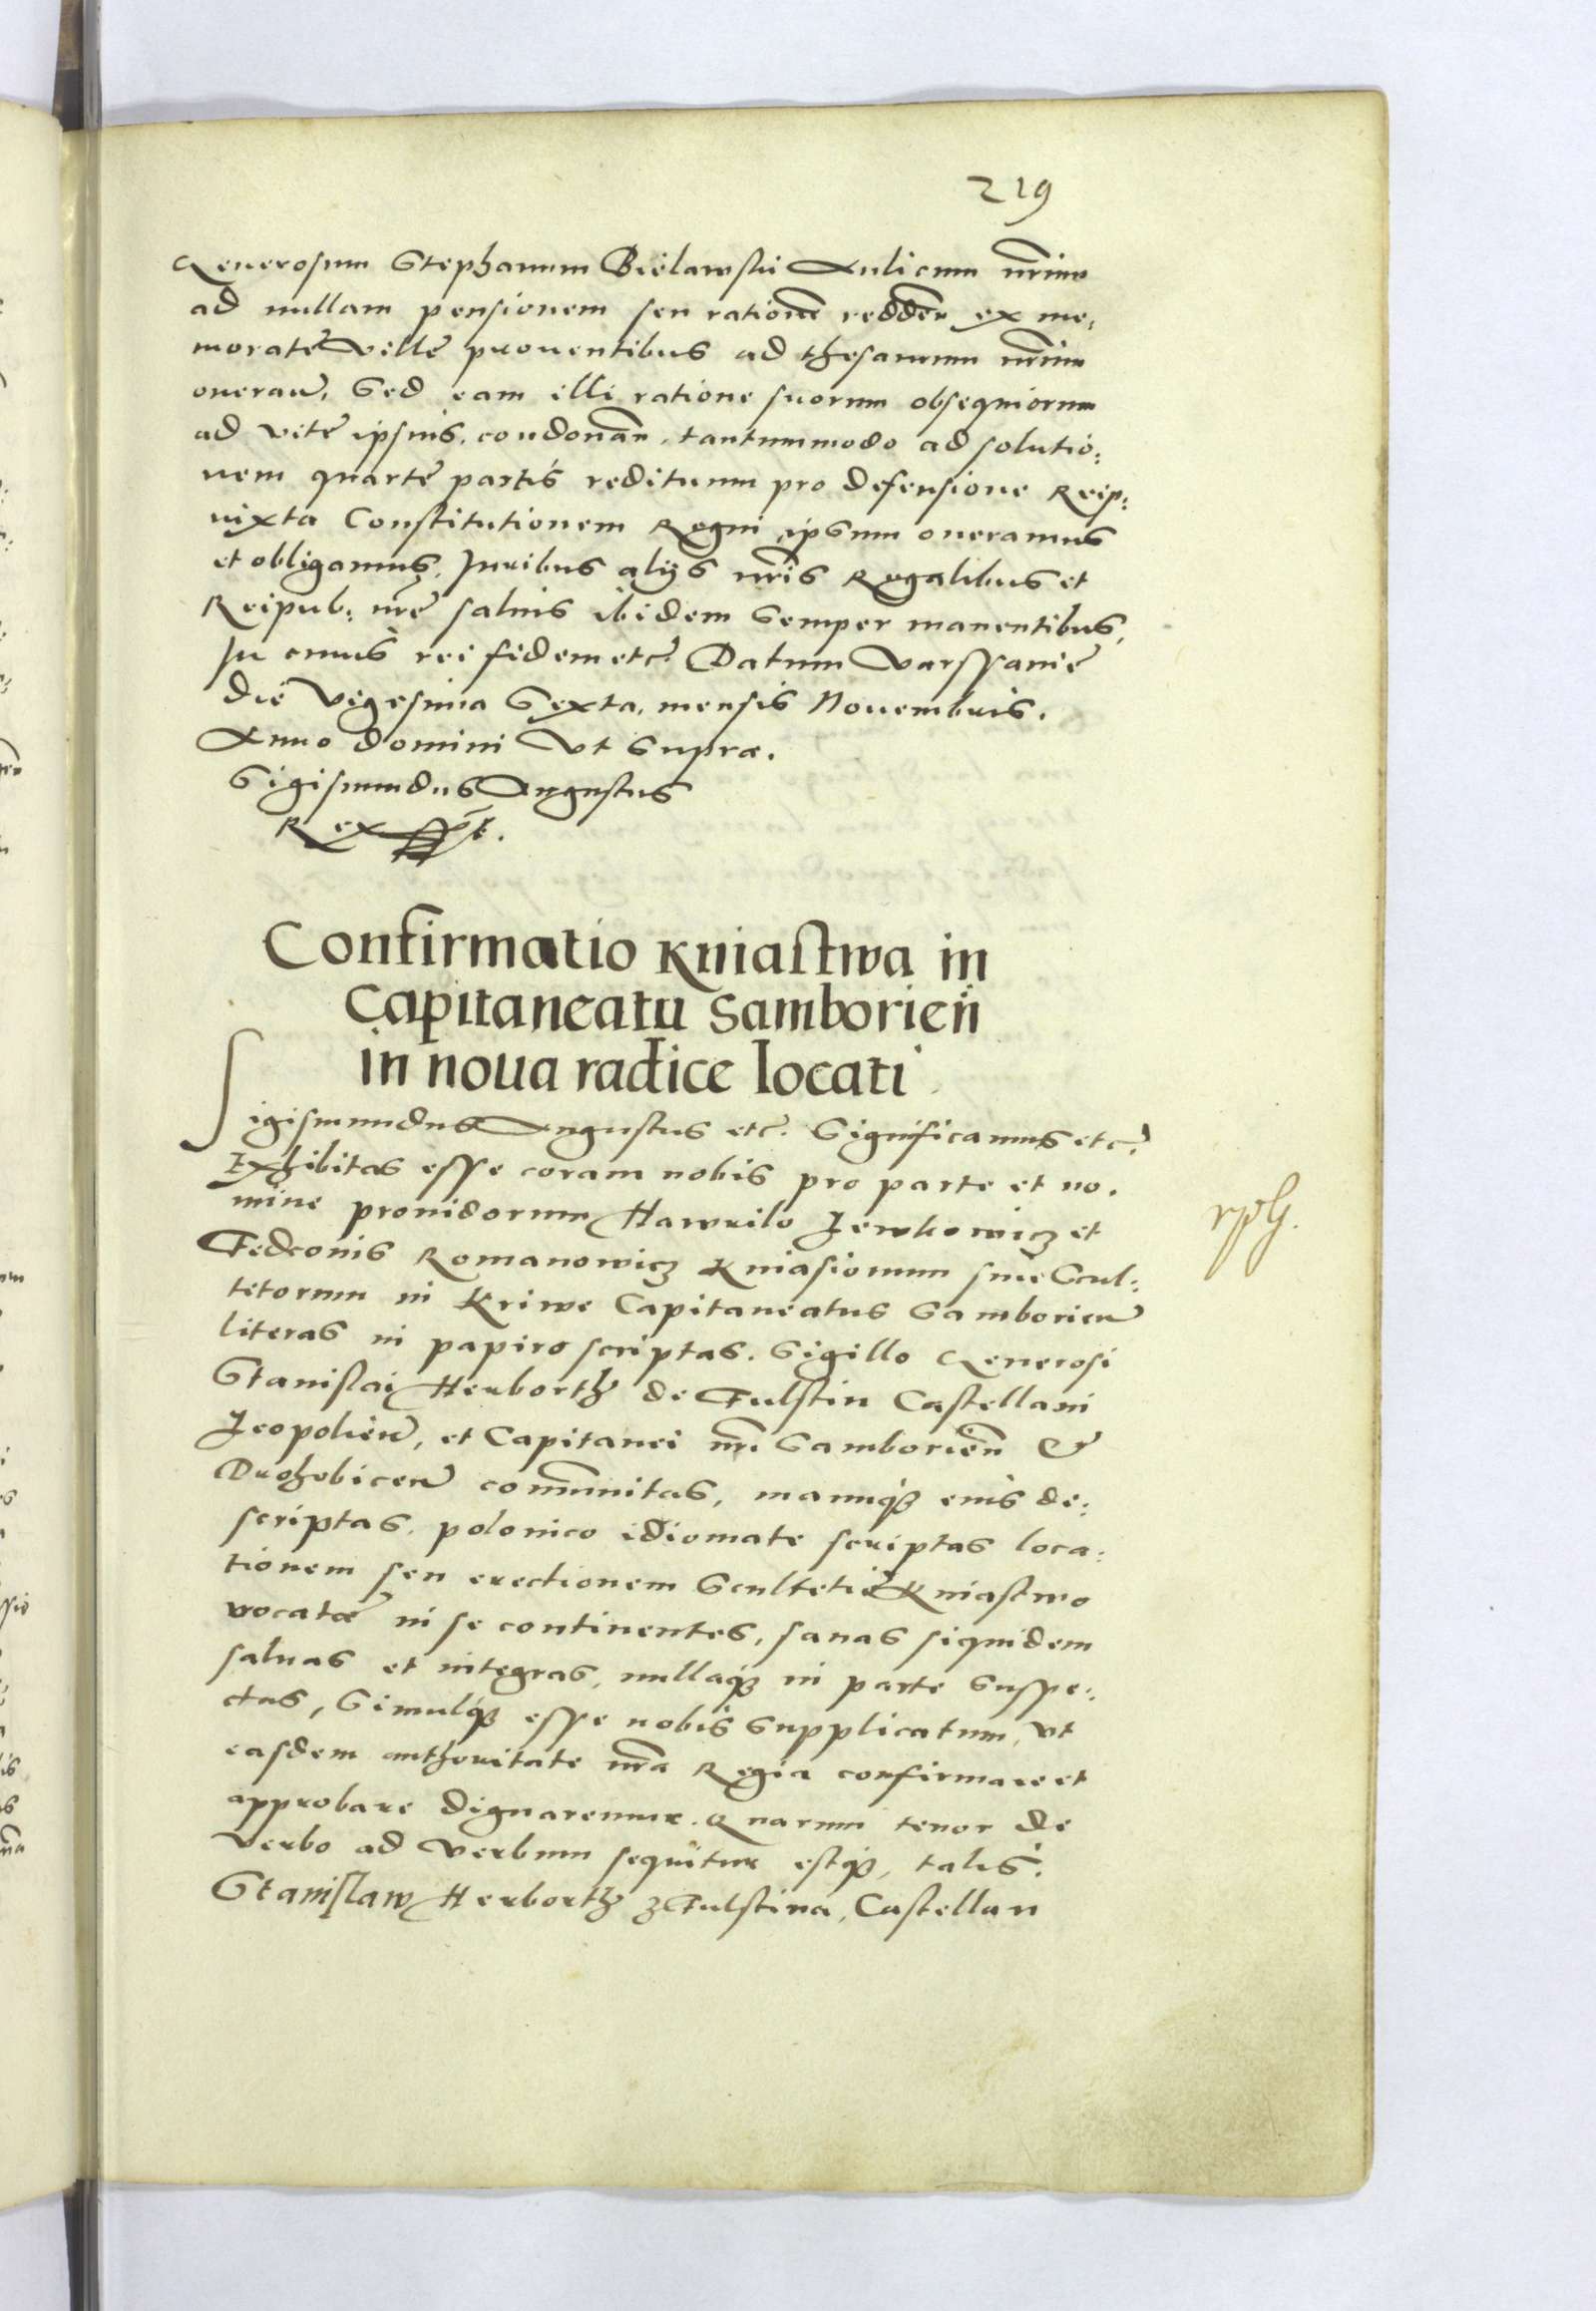 219
Generosum Stephanum Bielawski Aulicum nrm̃
ad nullam pensionem seu rationẽ reddeñ ex me,
moratę villę prouentibus ad thesaurum nrm̃
onerare, Sed eam illi ratione suorum obsequiorum
ad vitę ipsius, condonañ, tantummodo ad solutio:
nem quartę partis redituum pro defensione Reip:
iuxta Constitutionem Regni ipsum oneramus
et obligamus, Juribus alijs nris̃ Regalibus et
Reipub: nrę̃ saluis ibidem semper manentibus,
In cuius rei fidem etc. Datum Varssauię
die Vigesima Sexta, mensis Nouembris.
Anno domini Vt supra.
Sigismundus Augustus
Rex sst.
Confirmatio Kniastwa in
Capitaneatu Samborieñ
in noua radice locati
Sigismundus Augustus etc. Significamus etc.
Exhibitas esse coram nobis pro parte et no.
mine prouidorum Hawrilo Jewkowicz et
Fedconis Romanowicz Kniasionum siue Scul:
tetorum in Kriwe Capitaneatus Samborieñ
literas in papiro scriptas, Sigillo Generosi
Stanislai Herborth de Fulstin Castellani
Leopolieñ, et Capitanei nrĩ Samborieñ &
Drohobiceñ com̃unitas, manuq; eius de:
scriptas, polonico idiomate scriptas loca:
tionem seu erectionem Scultetię Kniastwo
vocatæ in se continentes, sanas siquidem
saluas et integras, nullaq; in parte suspe:
ctas, Simulq; esse nobis supplicatum, vt
easdem authoritate nrã Regia confirmare et
approbare dignaremur. Quarum tenor de
verbo ad verbum sequitur estq; talis.
Stanislaw Herborth z Fulstina, Castellan